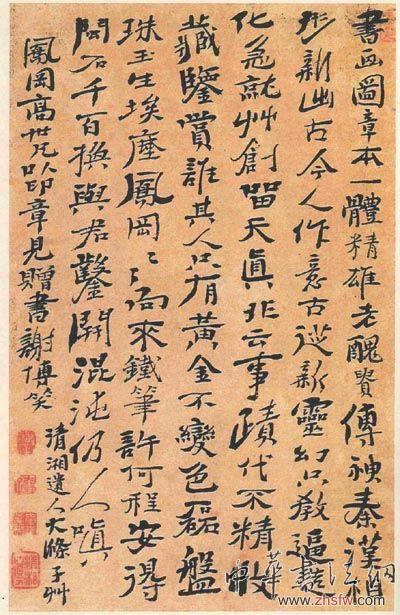 書画圖章本一體精雄老醜貴傳神秦漢相
形新出古今人作意古從新靈幻只教逼造
化急就艸創留天真非云事蹟代不精收
藏鑒賞誰其人只有黃金不變色磊盤
珠玉生埃塵鳳岡〻〻向來鐵筆許何程安得
閒石千百換與君鑿開混沌仍人嗔
鳳岡高世兄以印章見贈書謝博笑
清湘遺人大滌子艸
www.zhsfw.com